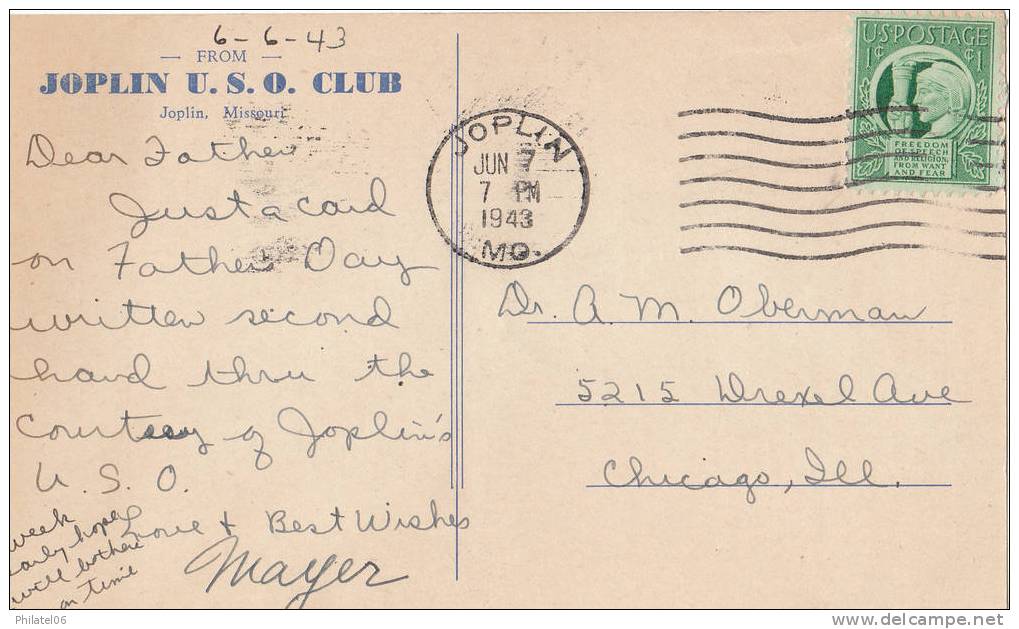 6-6-43
— FROM —
JOPLIN U. S. O. CLUB
Joplin, Missouri
Dear Father
Just a card
on Father Day
written second
hand thru the
courtesy of Joplin's
U. S. O.
Love & Best Wishes
Mayer
week
early hope
will both
on time
JOPLIN
JUN 7
7 PM
1943
MO.
U.S. POSTAGE
1¢ ¢1
FREEDOM
OF SPEECH
AND RELIGION,
FROM WANT
AND FEAR
Dr. A. M. Oberman
5215 Drexel Ave
Chicago, Ill.
Philatel06
delcampe.net